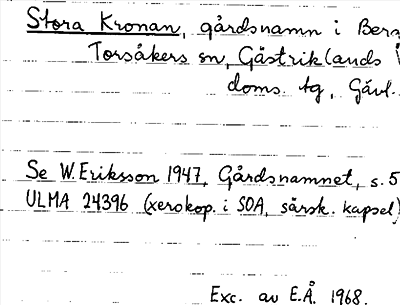 Stora Kronan, gårdsnamn i Berg
Torsåkers sn, Gästriklands
doms. tg, Gävl.
Se W. Eriksson 1947, Gårdsnamnet, s. 5
ULMA 24396 (xerokop. i SOA, särsk. kapsel)
Exc. av E.Å. 1968.